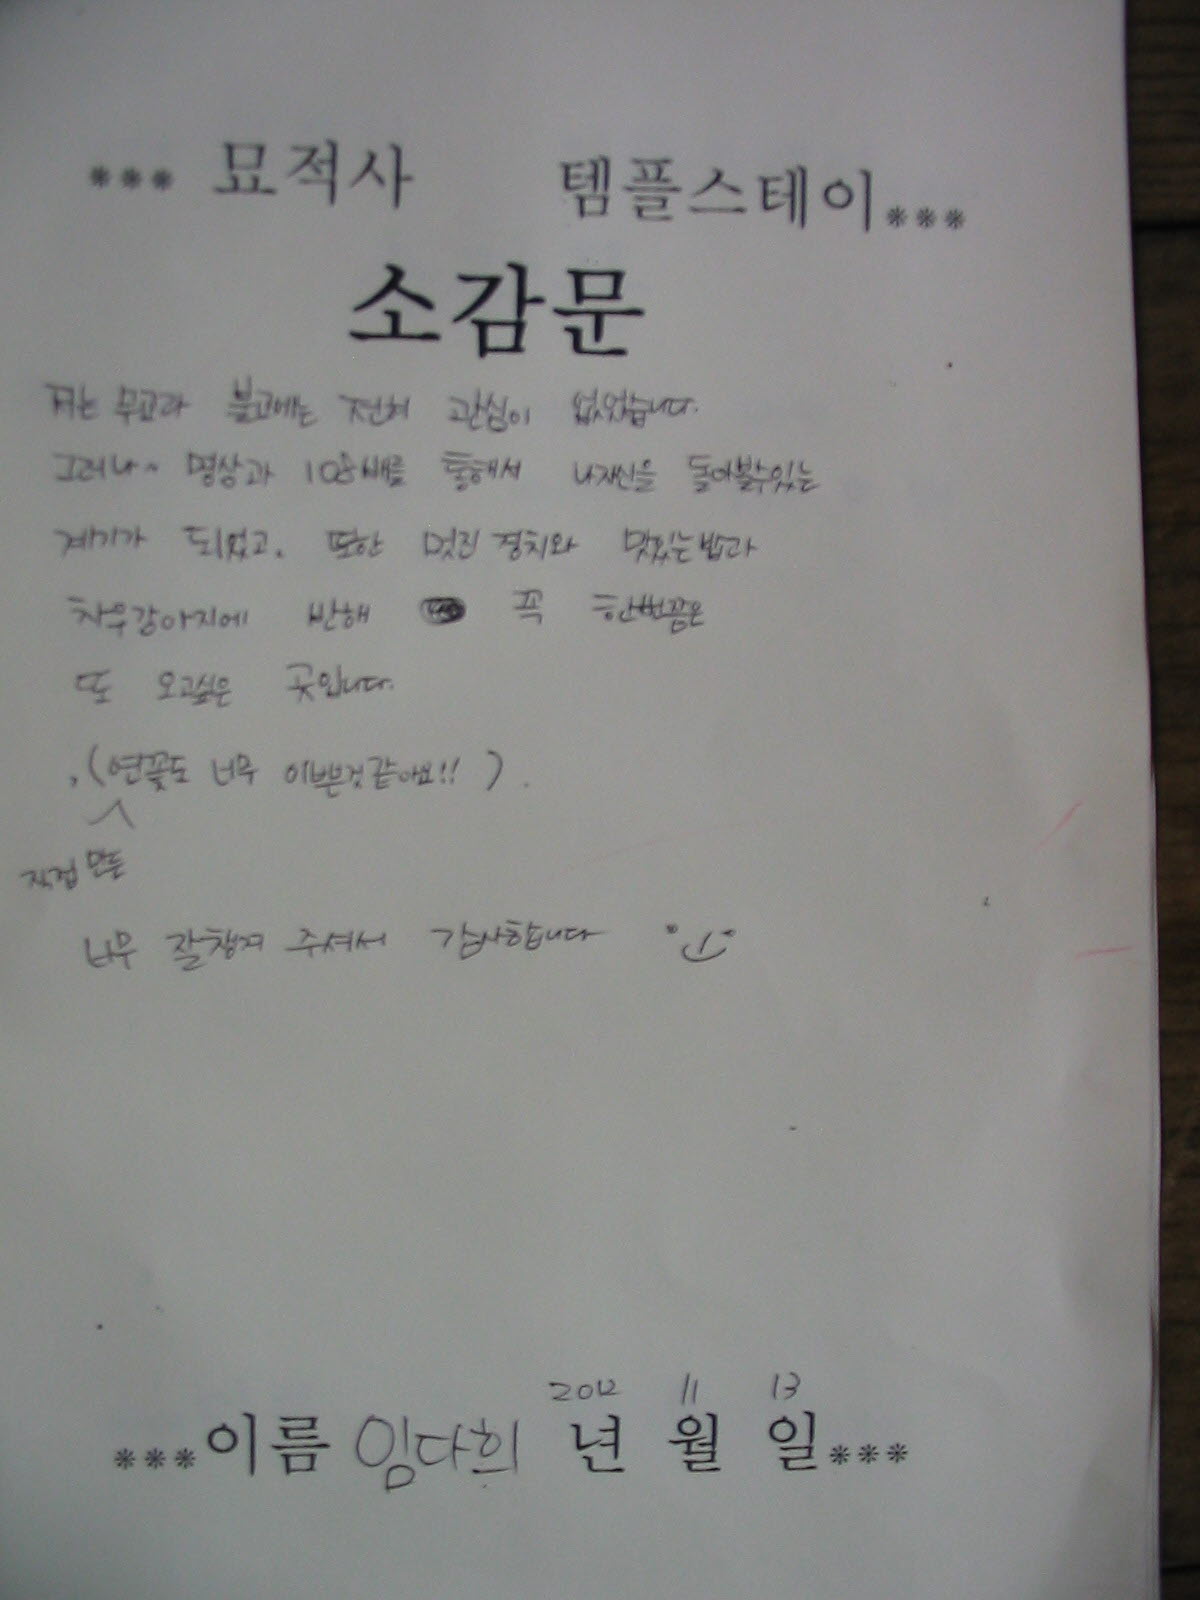 *** 묘적사 템플스테이 ***
소감문
저는 무교라 불교에는 전혀 관심이 없었습니다.
그러나~ 명상과 108배를 통해서 나자신을 돌아볼수있는
계기가 되었고, 또한 멋진 경치와 맛있는밥과
차우강아지에 반해 꼭 한번쯤은
또 오고싶은 곳입니다.
(연꽃도 너무 이쁜것같아요!!).
직접 만든
너무 잘챙겨 주셔서 감사합니다
2012 11 13
***이름 임다희 년 월 일***